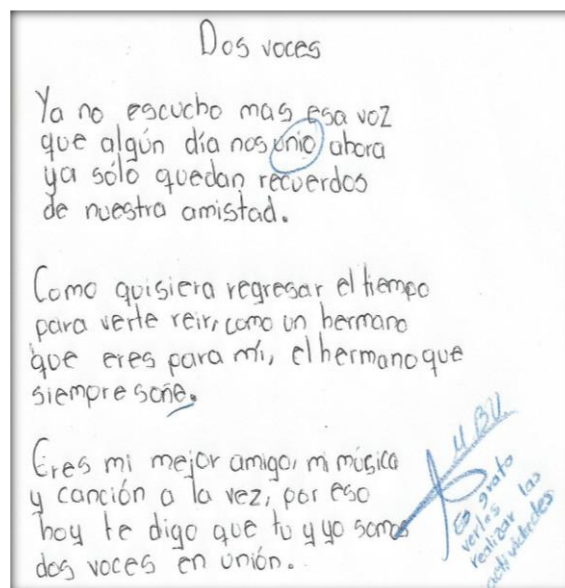 Dos voces
Ya no escucho mas esa voz
que algún día nos unio ahora
ya sólo quedan recuerdos
de nuestra amistad.
Como quisiera regresar el tiempo
para verte reir, como un hermano
que eres para mi, el hermano que
siempre soñe.
Eres mi mejor amigo, mi música
y canción a la vez, por eso
hoy te digo que tu y yo somos
dos voces en unión.
M.BU
Es grato
verlas las
realizar
actividades